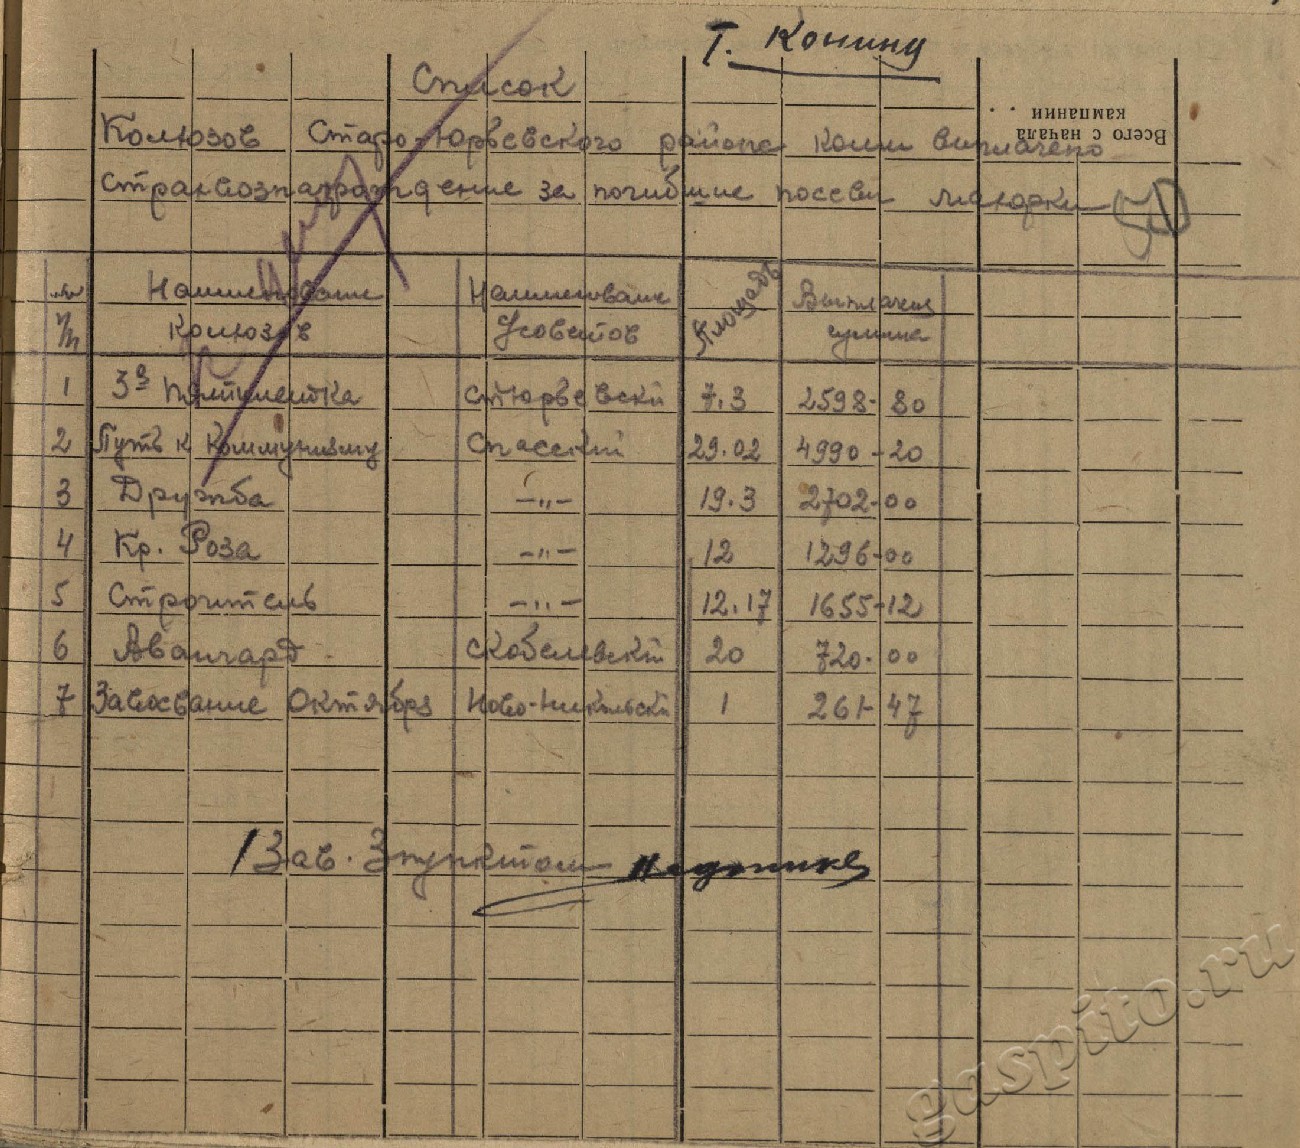 Т. Конину
Список
Колхозов Старо-Юрьевского района коим выплачено
страхвознаграждение за погибшие посевы махорки
Всего с начала
кампании
№№ Наименование Наименование Площадь Выплачен
п/п колхозов с/советов сумма
1 3я пятилетка СтЮрьевский 7.3 2598-80
2 Путь к коммунизму Спасский 29.02 4990-20
3 Дружба -"- 19.3 2702-00
4 Кр. Роза -"- 12 1296-00
5 Строитель -"- 12.17 1655-12
6 Авангард Скобелевский 20 720-00
7 Завоевание Октября Ново-Никольский 1 261-47
Зав. Зпунктом
gaspito.ru